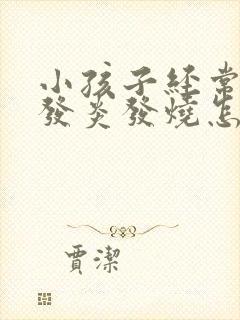 小孩子經常
發炎發燒怎
賈潔